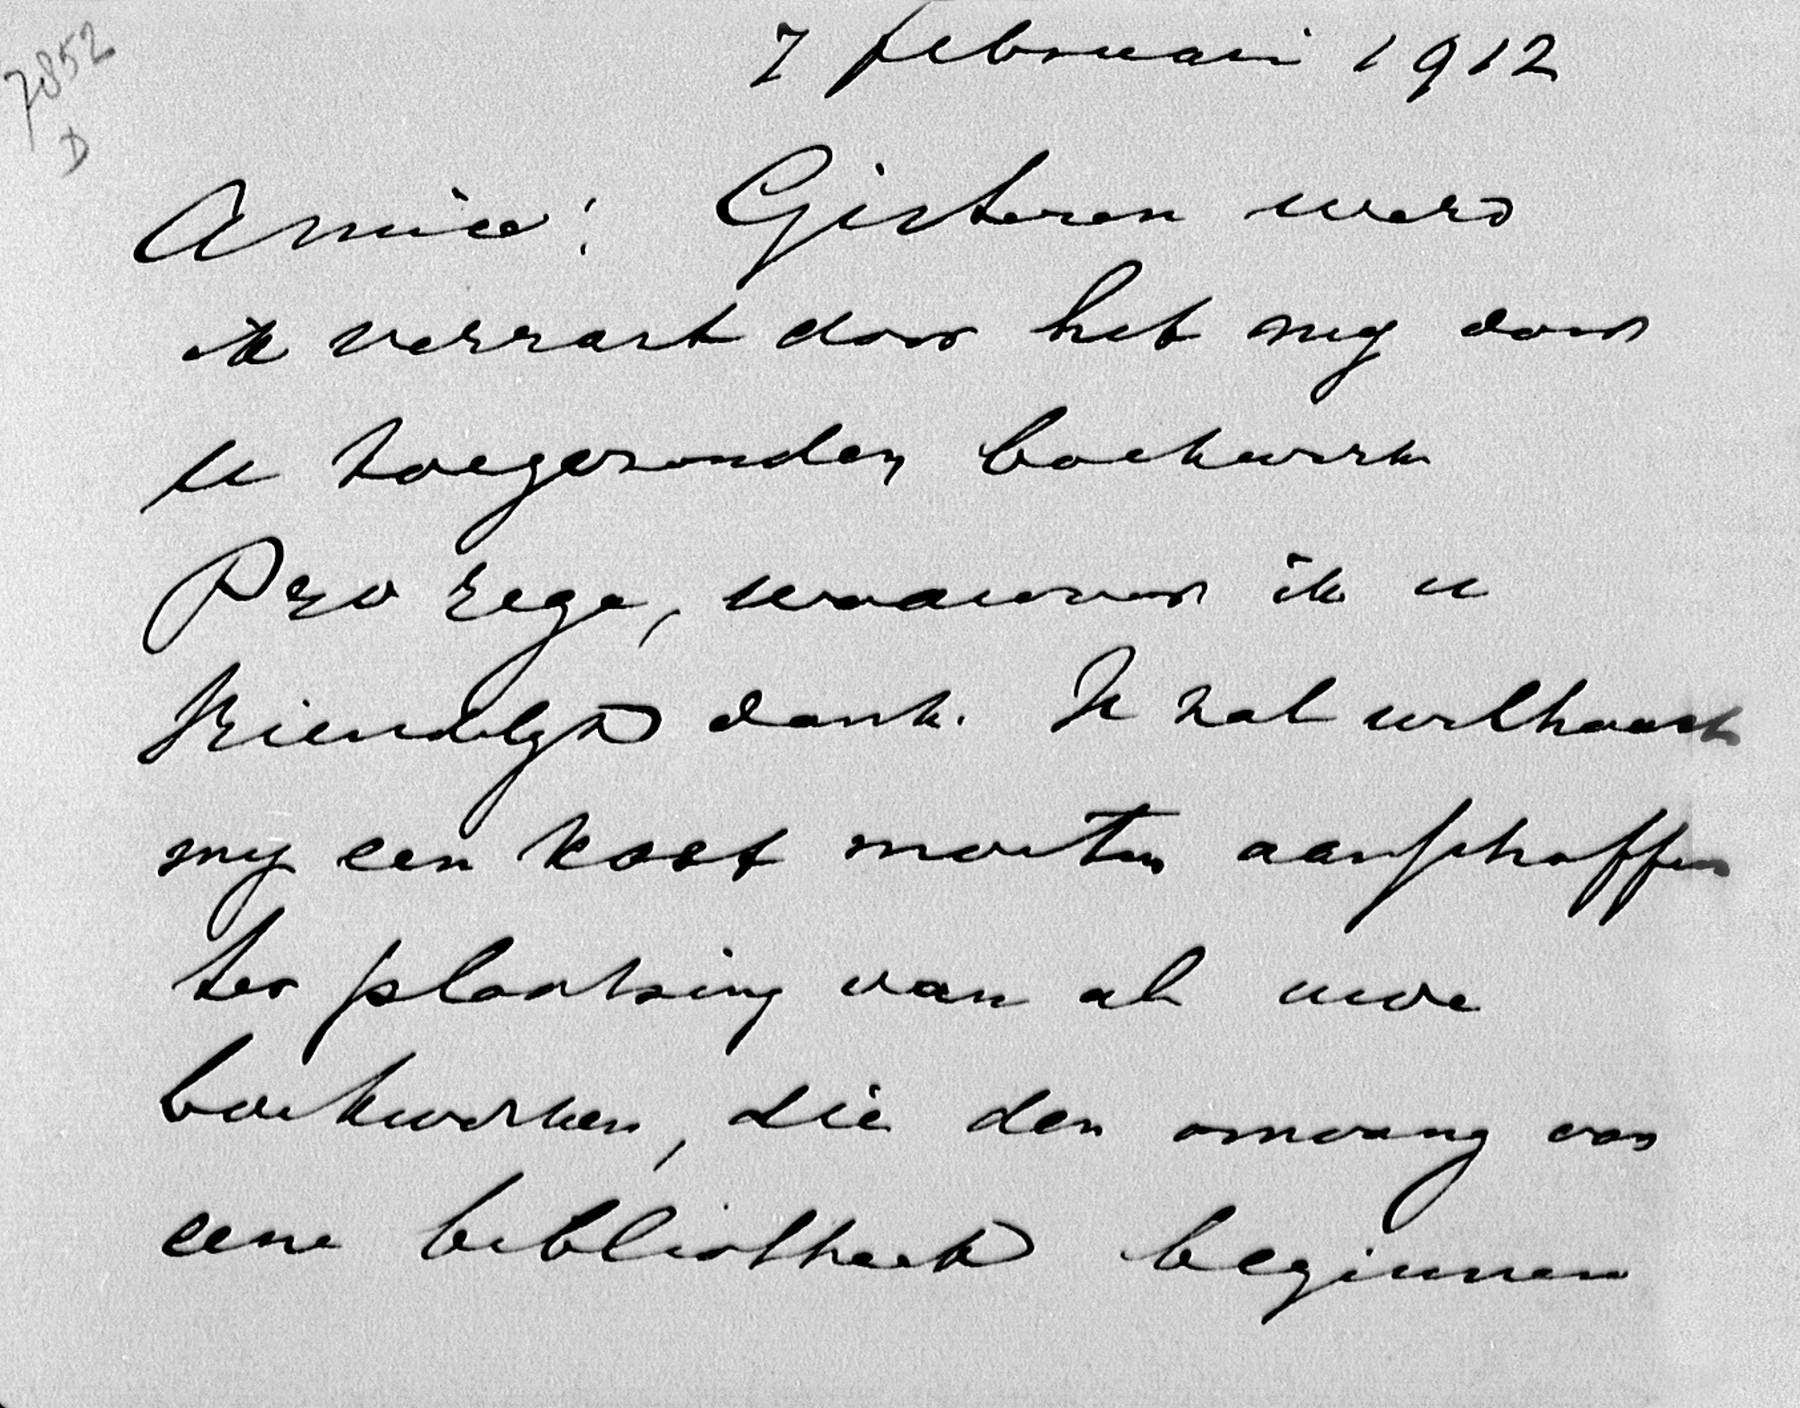 7852
D
7 februari 1912
Amice! Gisteren werd
ik verrast door het mij door
u toegezonden boekwerk
Pro rege, waarvoor ik u
vriendelijk dank. Ik zal welhaast
mij een kast moeten aanschaffen
ter plaatsing van al uwe
boekwerken, die den omvang van
eene bibliotheek beginnen